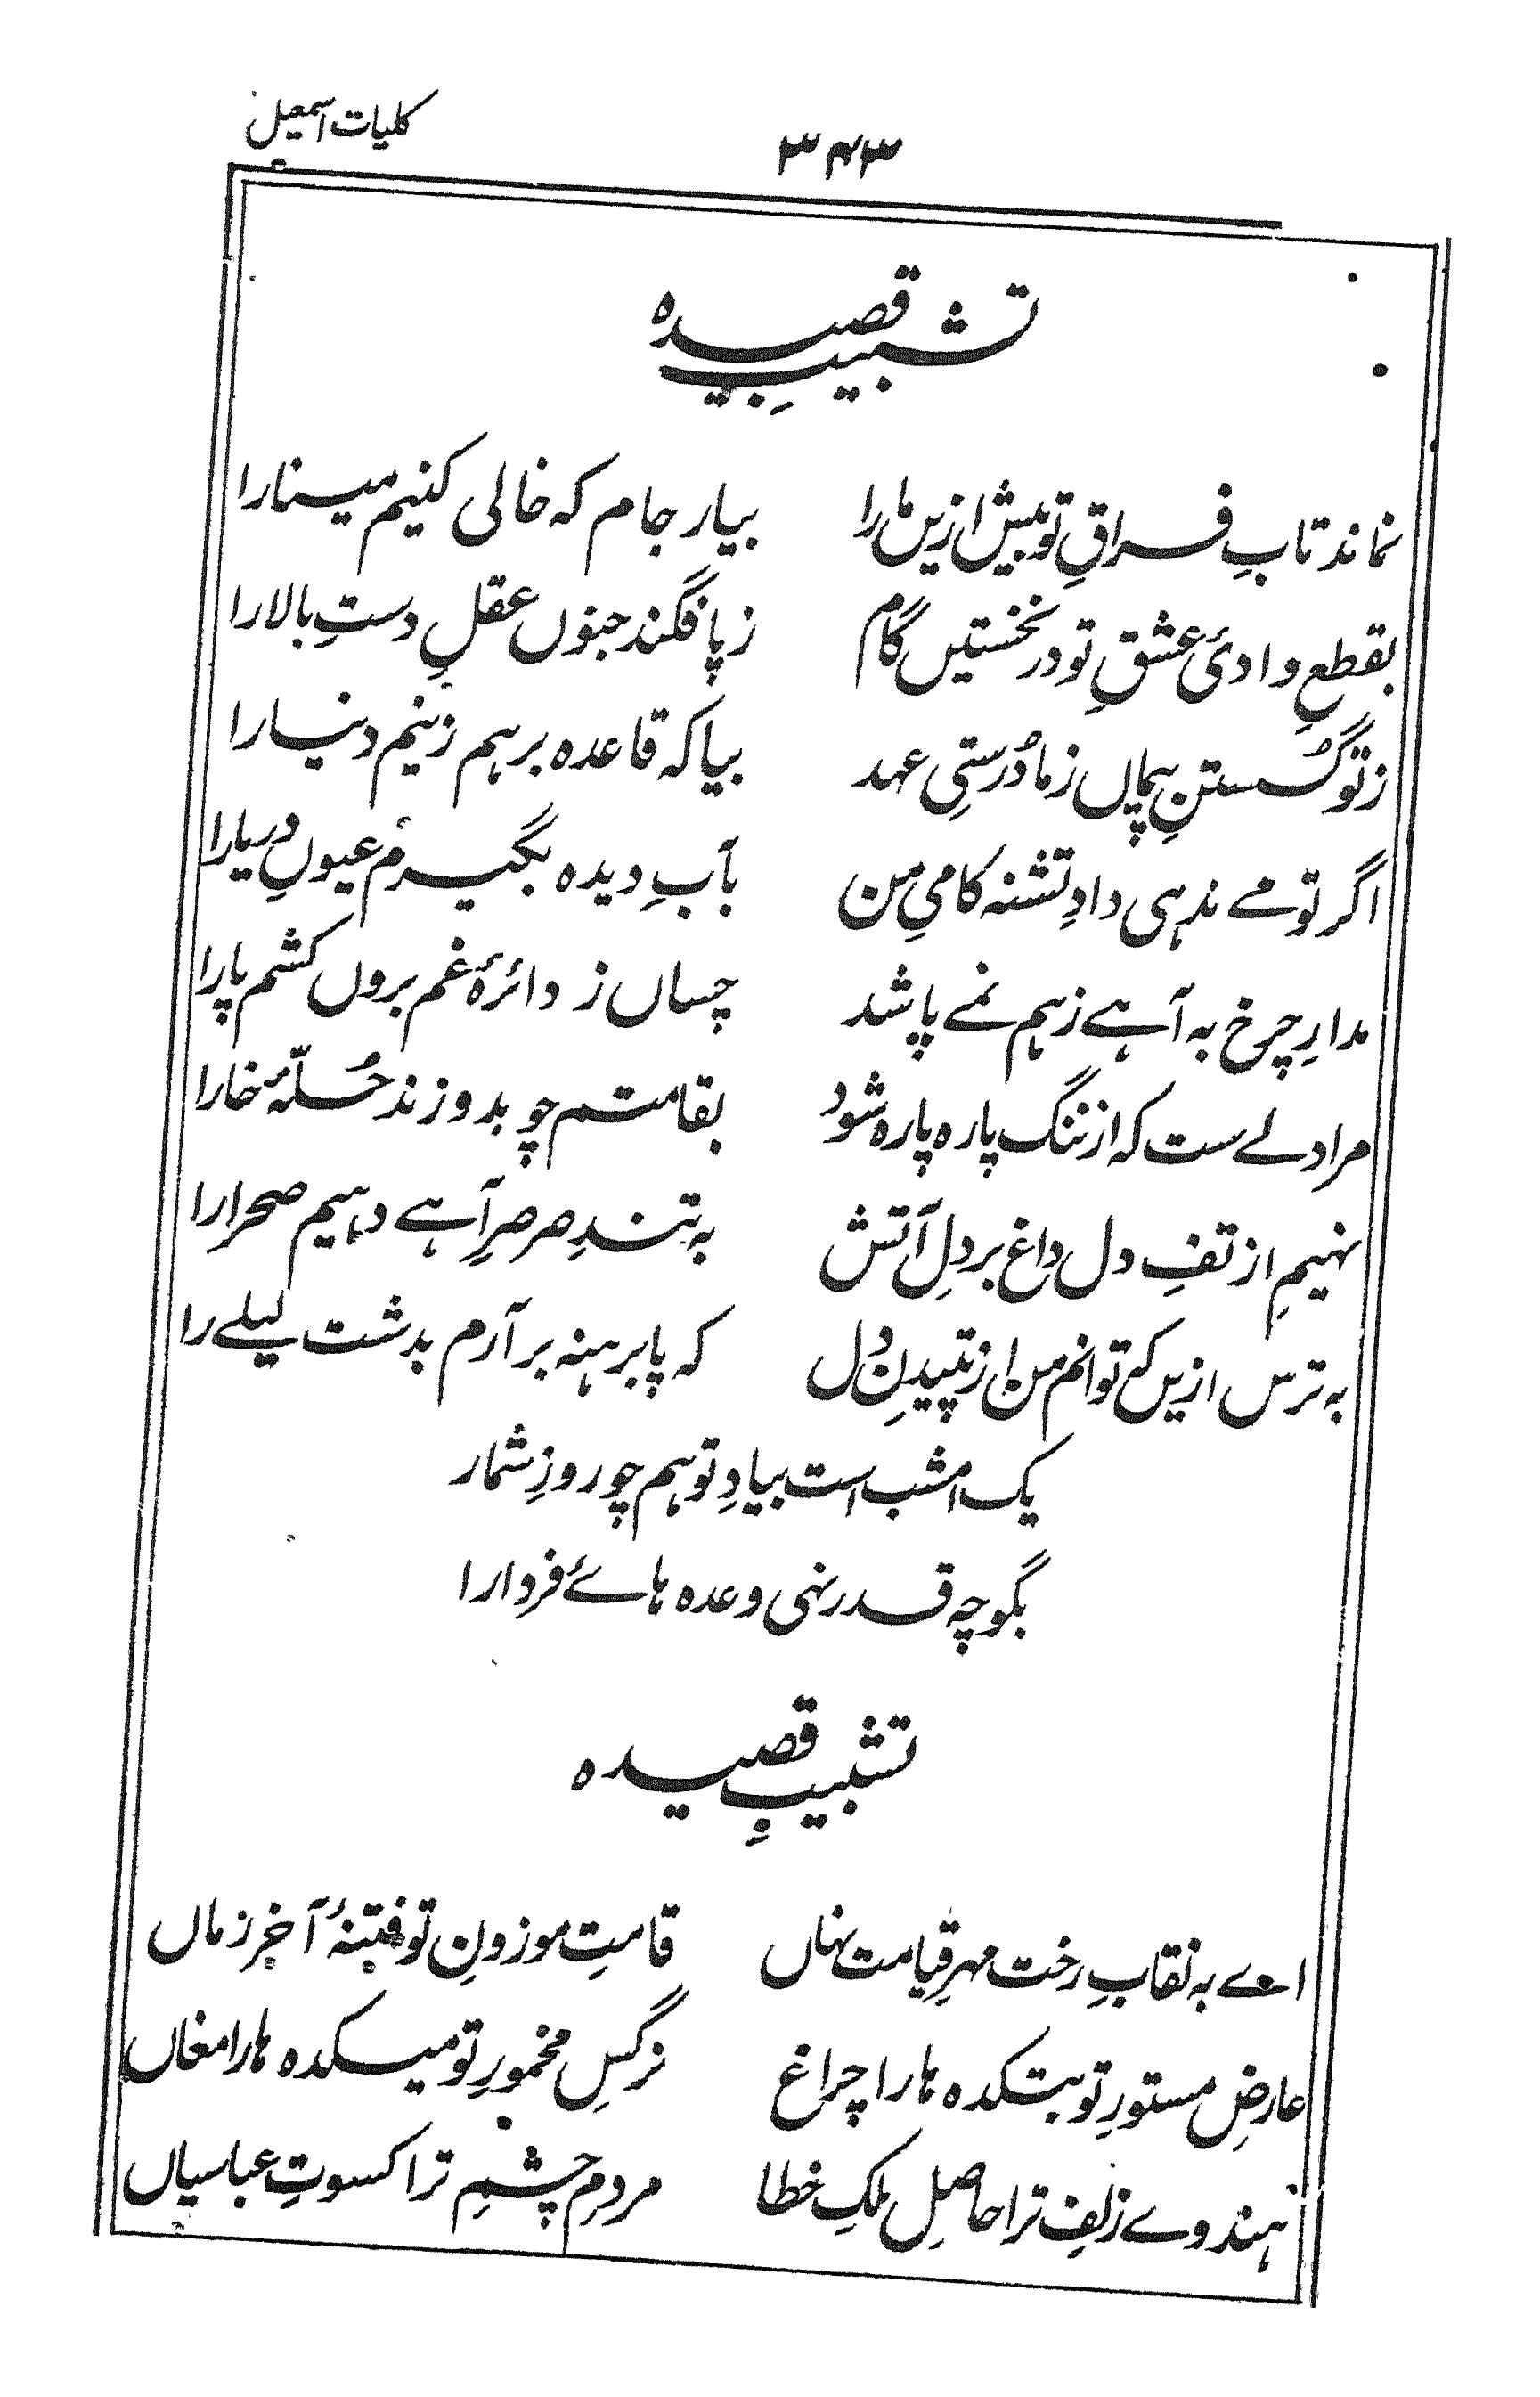 کلیات اسمعیل
۳۴۳
تشبیبِ قصیدہ
نماند تابِ فراقِ تو بیش ازیں مارا بیار جام کہ خالی کنیم مینارا
بقطعِ وادئ عشقِ تو در نخستیں گام زپا فگند جنوں عقلِ دستِ بالارا
ز تو گُسستنِ پیماں ز ما دُرستیِ عہد بیا کہ قاعدہ برہم زنیم دنیارا
اگر تو مے ندہی دادِ تشنہ کامیِ من بآبِ دیدہ بگیرم عیونِ دریارا
مدارِ چرخ بہ آہے زہم نمے پاشد چساں ز دائرۂ غم بروں کشم پارا
مرا دلے ست کہ از ننگ پارہ پارہ شود بقامتم چو بدوزند حُلّۂ خارا
نہیم از تفِ دل داغ بر دلِ آتش بہ تندِ صرصرِ آہے دہیم صحرارا
بہ ترس ازیں کہ توانم من از تپیدنِ دل کہ پابرہنہ برآرم بدشت لیلے را
یک امشب است بیادِ تو ہم چو روزِ شمار
بگو چہ قدر نہی وعدہ ہائے فردارا
تشبیبِ قصیدہ
اے بہ نقابِ رخت مہرِ قیامت نہاں قامتِ موزونِ تو فتنۂ آخر زماں
عارضِ مستورِ تو بتکدہ ہارا چراغ نرگسِ مخمورِ تو میکدہ ہارا مغاں
ہندوے زلفِ ترا حاصلِ ملکِ خطا مردمِ چشمِ ترا کسوتِ عباسیاں